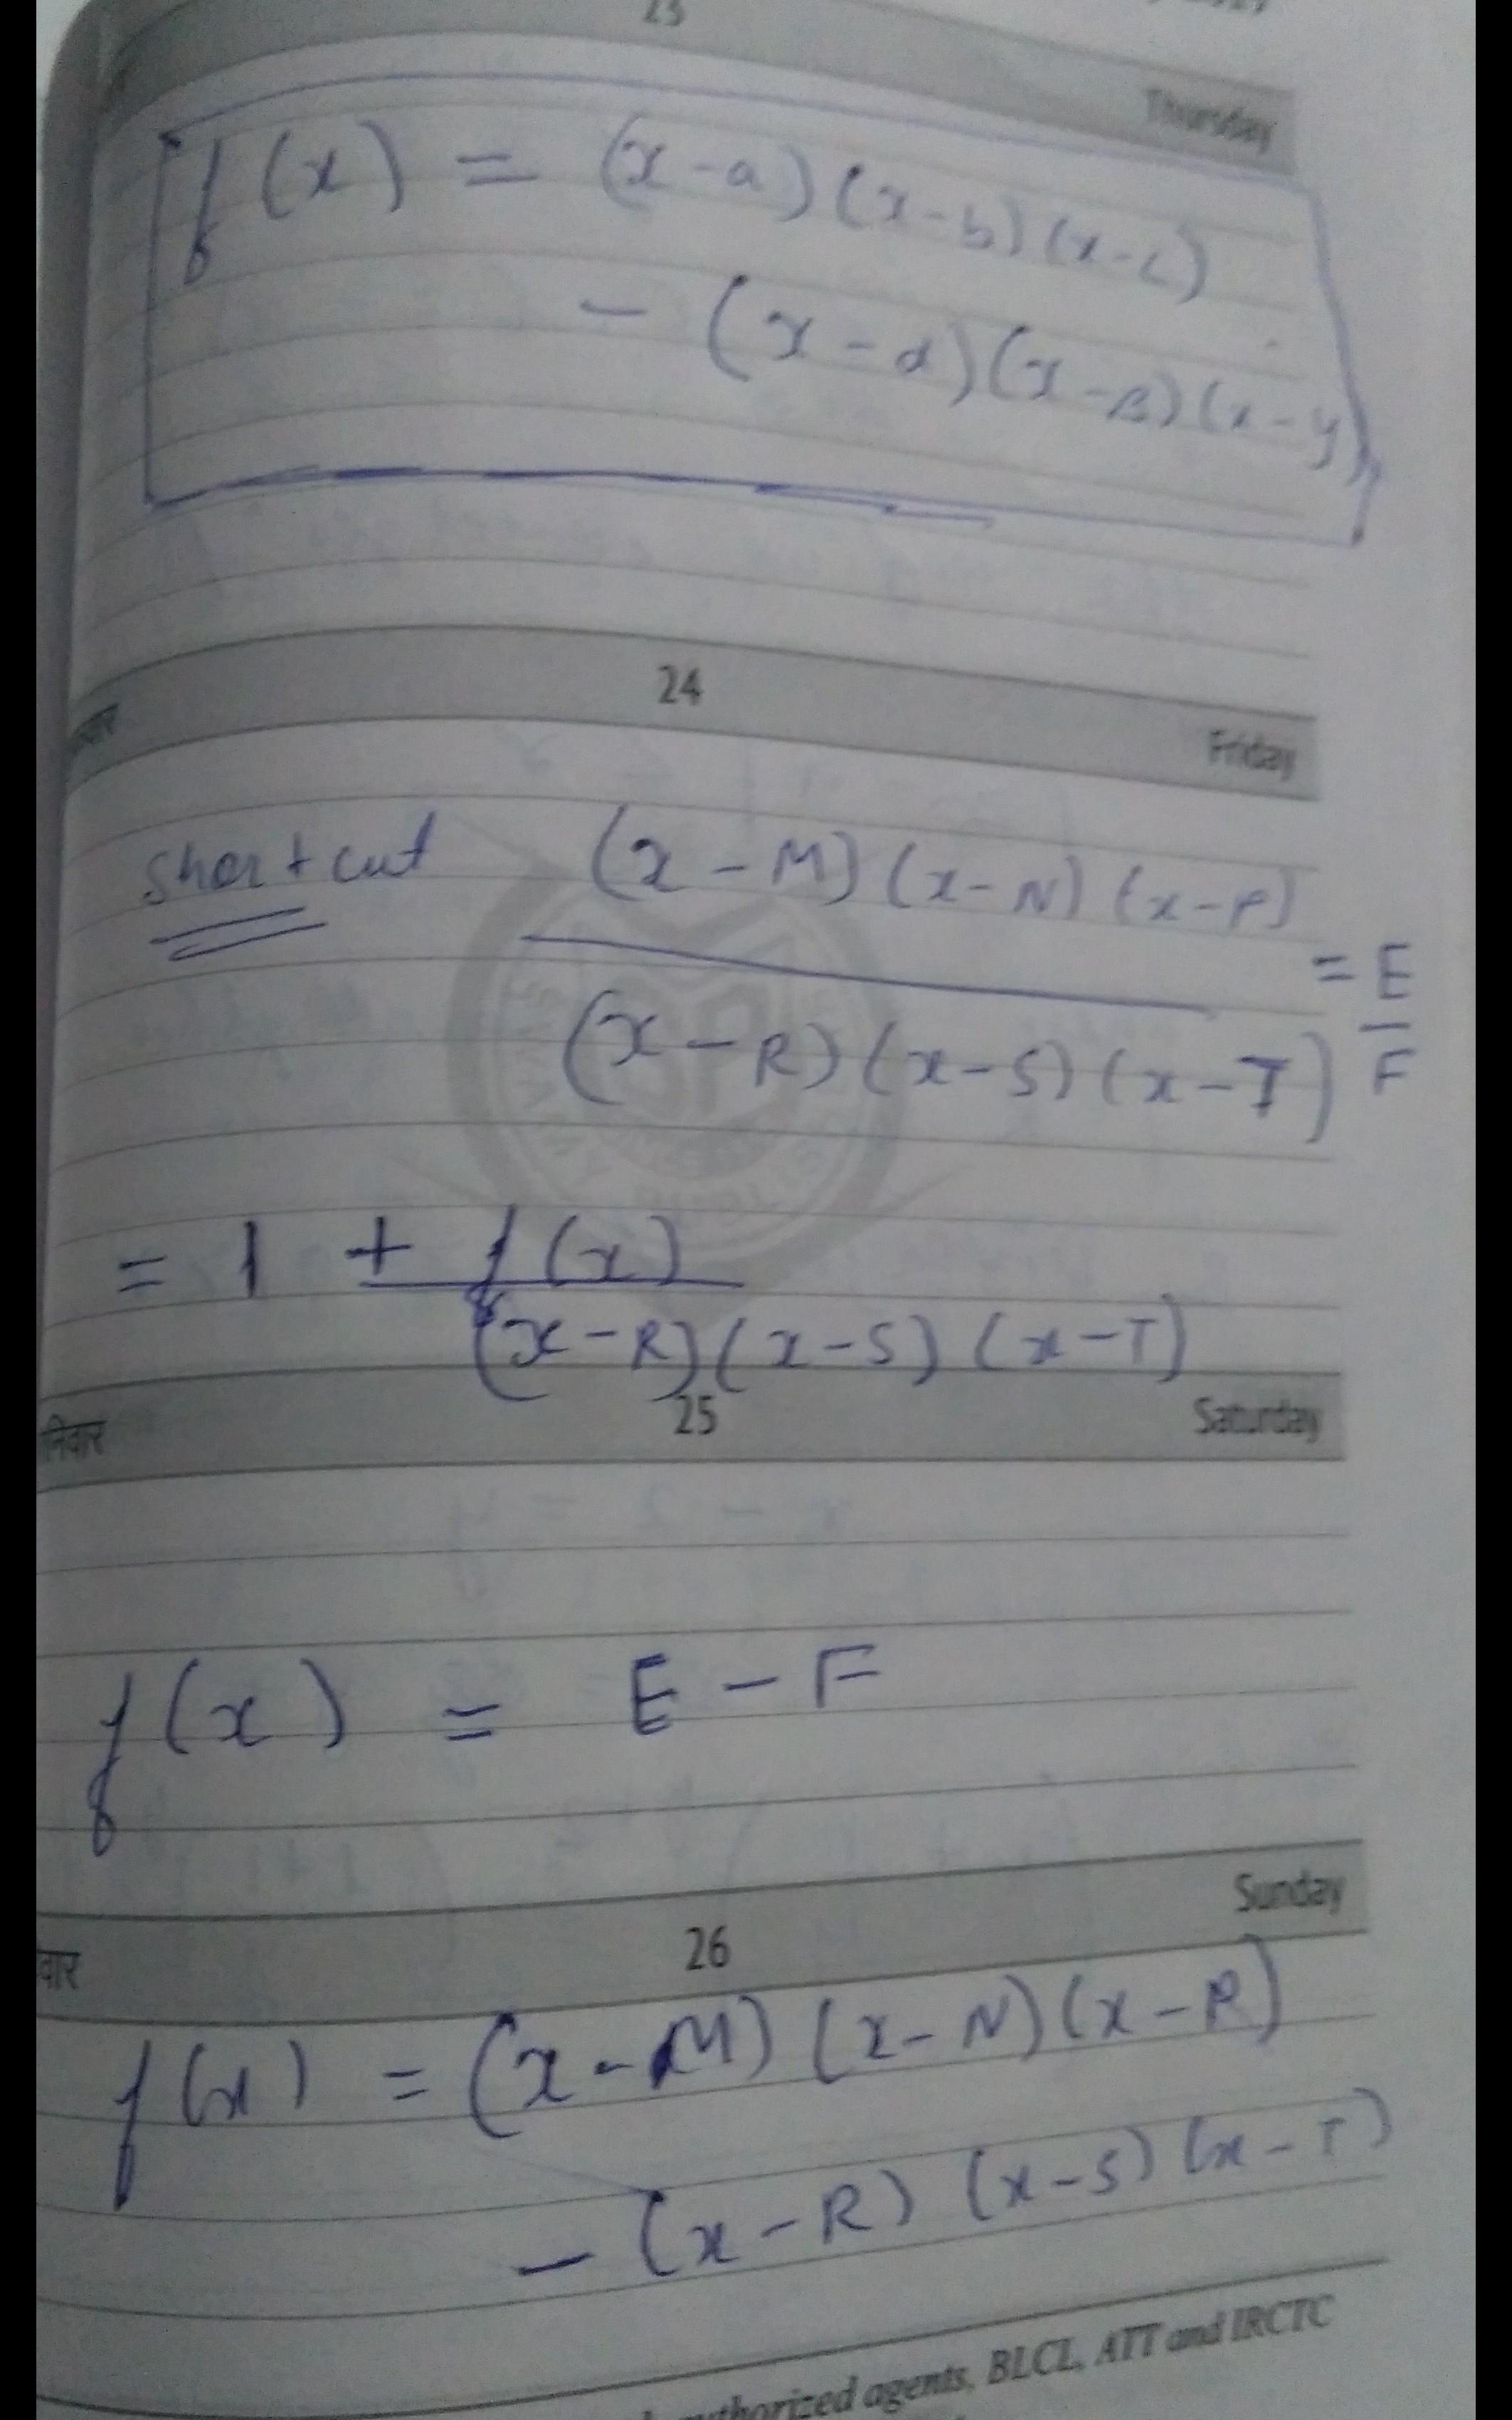 23
Thursday
f(x) = (x-a)(x-b)(x-c)
- (x-α)(x-β)(x-y)
24
Friday
Shortcut (x-M)(x-N)(x-P)
= E
(x-R)(x-S)(x-T) F
= 1 + f(x)
(x-R)(x-S)(x-T)
25
Saturday
f(x) = E - F
26
Sunday
f(x) = (x-M)(x-N)(x-P)
- (x-R)(x-S)(x-T)
authorized agents, BLCL, ATT and IRCTC